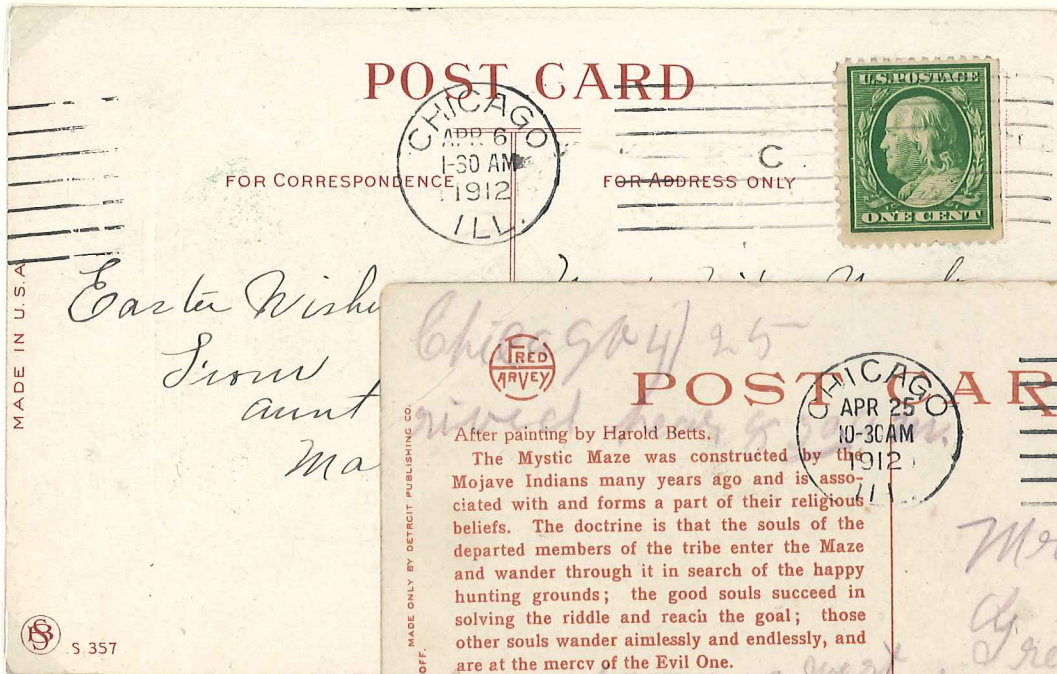 POST CARD
CHICAGO
APR 6
1-30 AM
1912
ILL.
C
U.S. POSTAGE
ONE CENT
FOR CORRESPONDENCE
FOR ADDRESS ONLY
MADE IN U.S.A.
Easter Wishe
From
aunt
Ma
S. 357
Chicago 4/25
FRED
HARVEY
POST CAR
CHICAGO
APR 25
10-30AM
1912
ILL
MADE ONLY BY DETROIT PUBLISHING CO.
OFF.
After painting by Harold Betts.
The Mystic Maze was constructed by the
Mojave Indians many years ago and is asso-
ciated with and forms a part of their religious
beliefs. The doctrine is that the souls of the
departed members of the tribe enter the Maze
and wander through it in search of the happy
hunting grounds; the good souls succeed in
solving the riddle and reach the goal; those
other souls wander aimlessly and endlessly, and
are at the mercy of the Evil One.